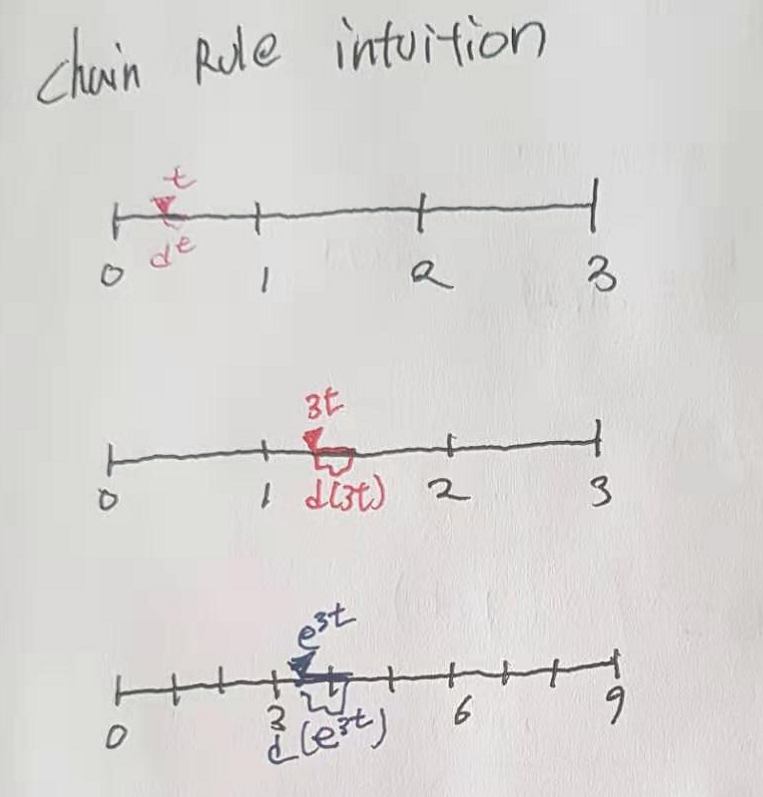 Chain Rule intuition
t
de
0 1 2 3
3t
0 1 d(3t) 2 3
e^3t
0 3 6 9
d(e^3t)